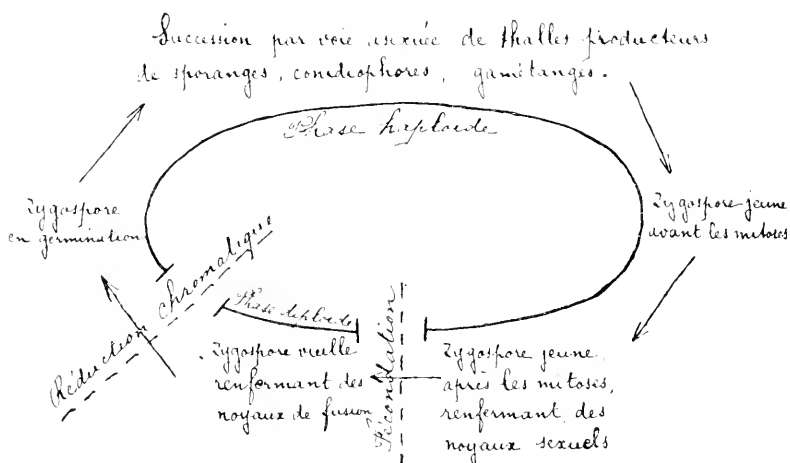 Succession par voie asexuée de thalles producteurs
de sporanges, conidiophores, gamétanges.
Phase haploide
Zygospore
en germination
Zygospore jeune
avant les mitoses
Réduction chromatique
Phase diploide
Fécondation
Zygospore vieille
renfermant des
noyaux de fusion
Zygospore jeune
après les mitoses,
renfermant des
noyaux sexuels